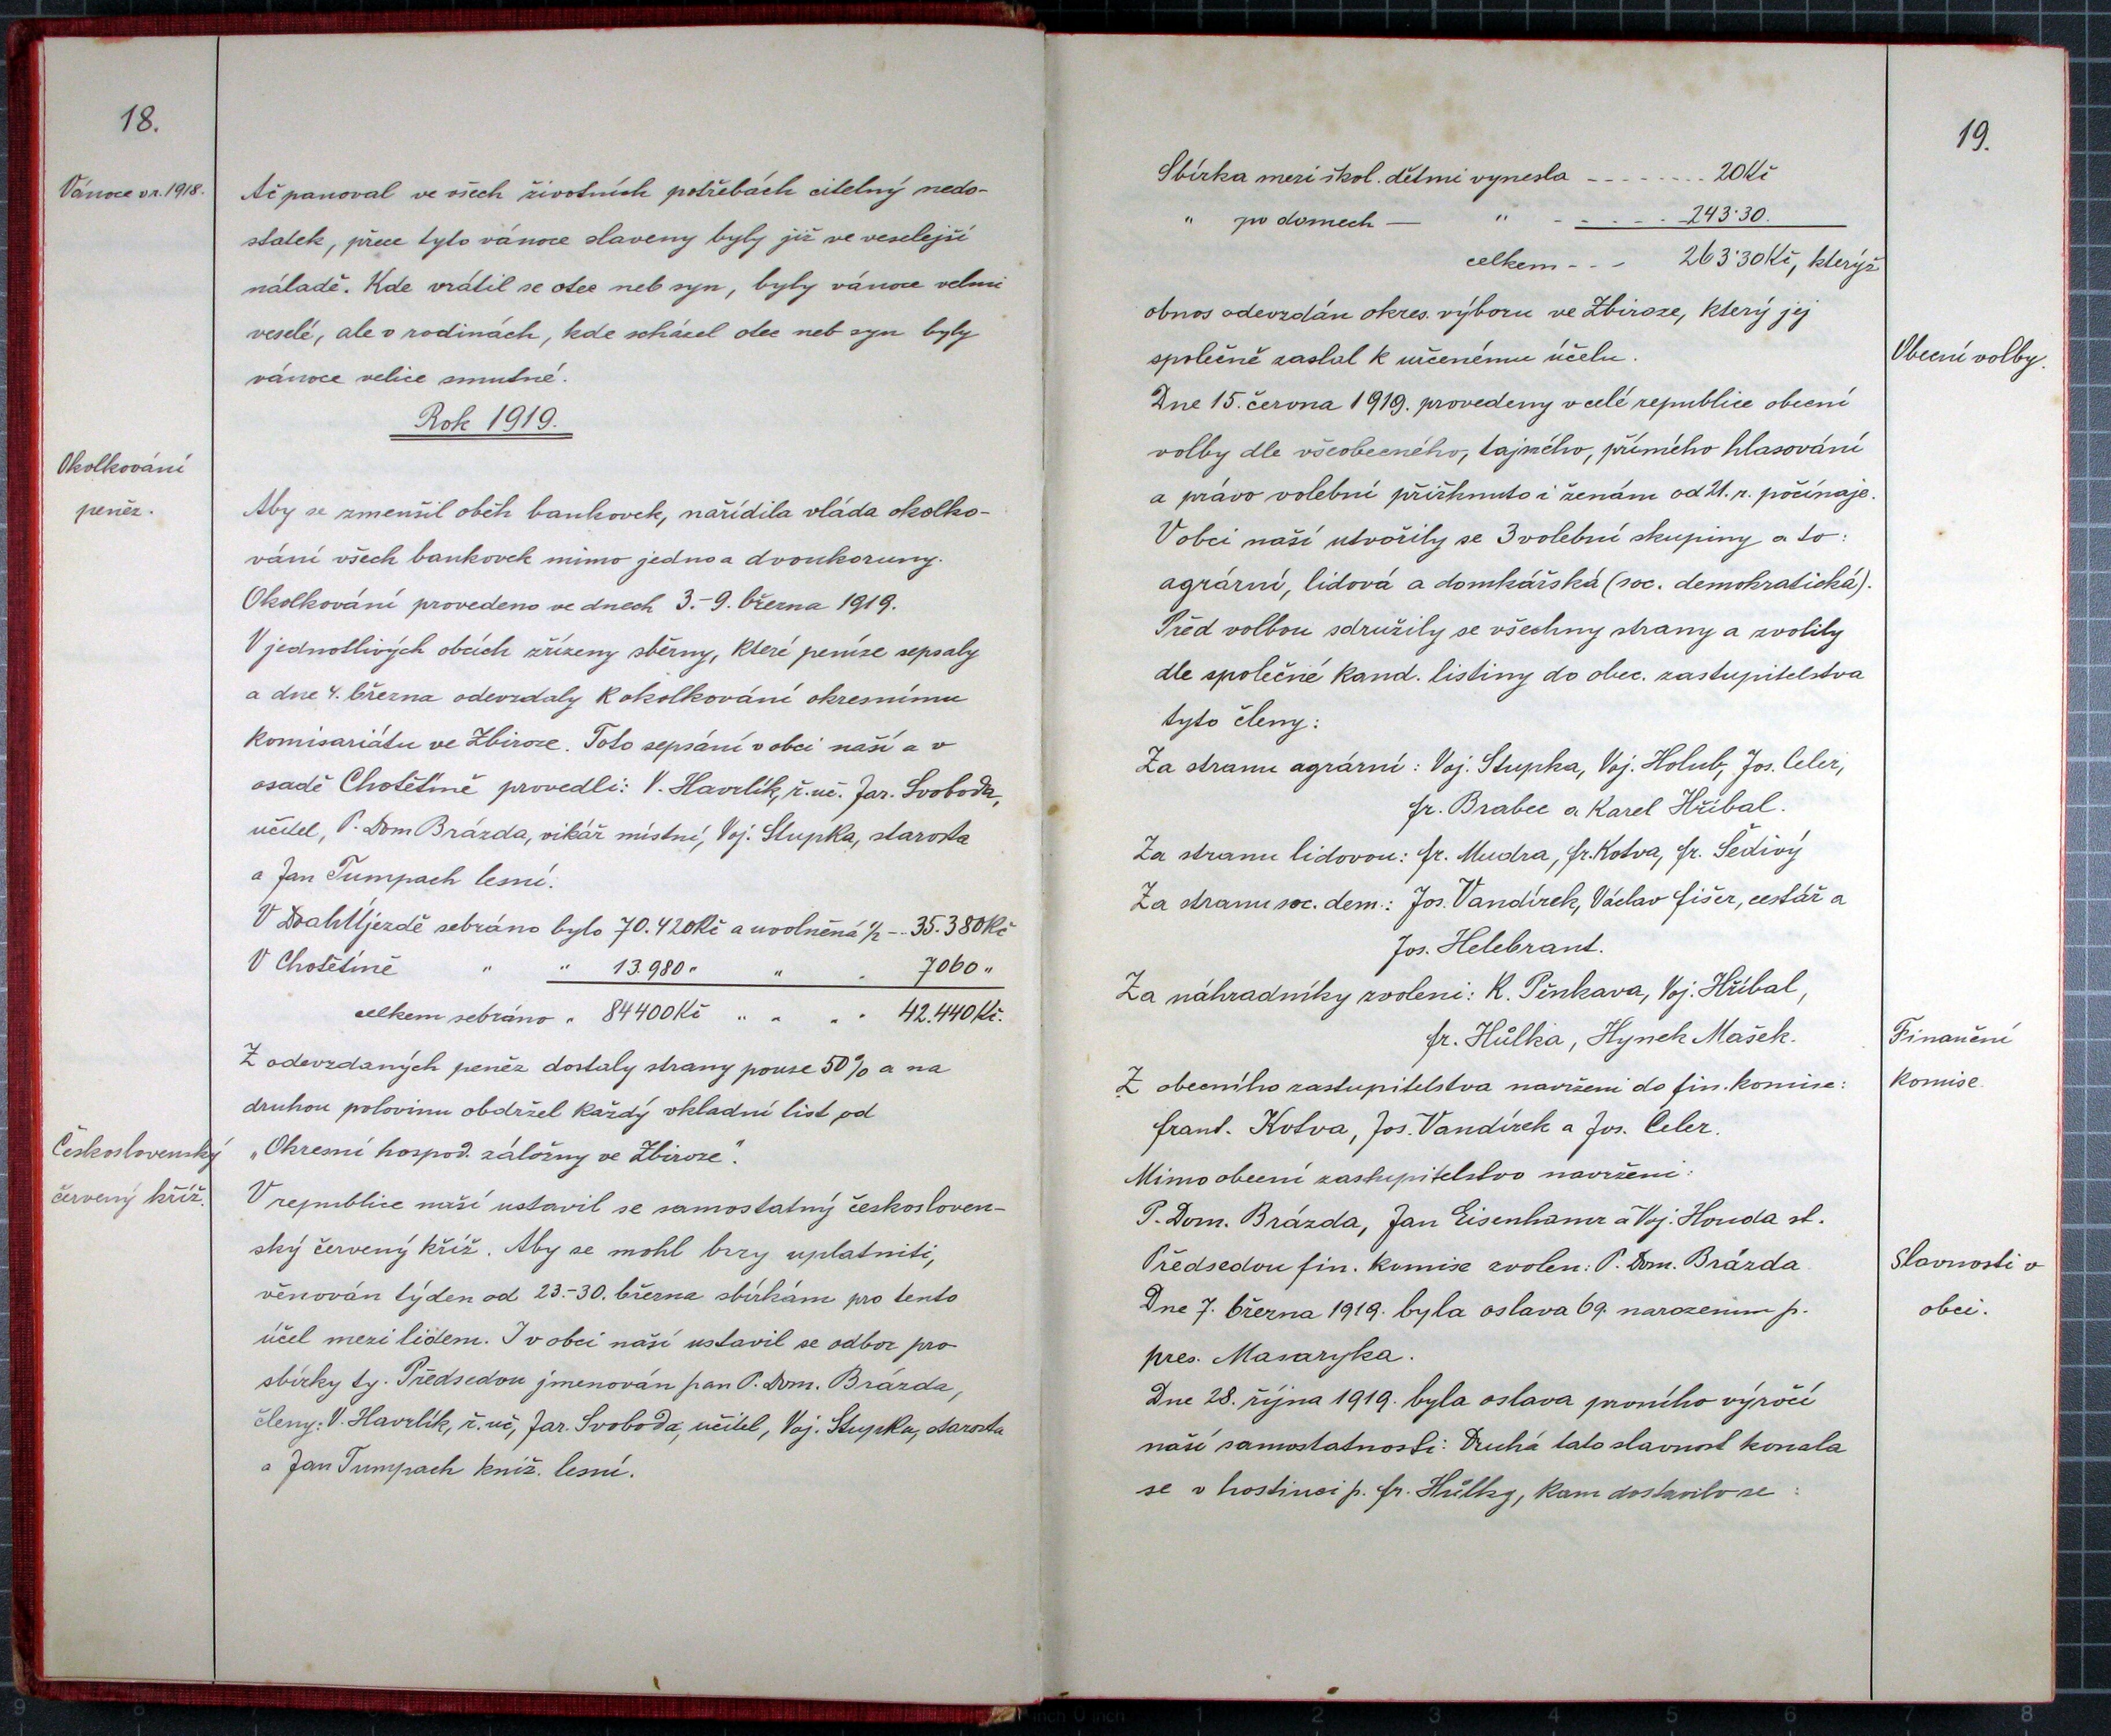 18.
Vánoce v r. 1918.
Ač panoval ve všech životních potřebách citelný nedo-
statek, přece tyto vánoce slaveny byly již ve veselejší
náladě. Kde vrátil se otec neb syn, byly vánoce velmi
veselé, ale v rodinách, kde scházel otec neb syn byly
vánoce velice smutné.
Rok 1919.
Okolkování
peněz.
Aby se zmenšil oběh bankovek, nařídila vláda okolko-
vání všech bankovek mimo jedno a dvoukoruny.
Okolkování provedeno ve dnech 3.-9. března 1919.
V jednotlivých obcích zřízeny sběrny, které peníze sepsaly
a dne 4. března odevzdaly k okolkování okresnímu
komisariátu ve Zbiroze. Toto sepsání v obci naší a v
osadě Chotětíně provedli: V. Havrlík, ř. uč. Jar. Svoboda,
učitel, P. Dom Brázda, vikář místní, Voj. Stupka, starosta
a Jan Tumpach lesní.
V Drah Újezdě sebráno bylo 70.420 Kč a uvolněná 1/2 -- 35.380 Kč
V Chotětíně " " 13.980 " " . 7060 "
celkem sebráno " 84400 Kč " " " " 42.440 Kč.
Z odevzdaných peněz dostaly strany pouse 50% a na
druhou polovinu obdržel každý vkladní list od
„Okresní hospod. záložny ve Zbiroze".
Československý
červený kříž.
V republice naší ustavil se samostatný českosloven-
ský červený kříž. Aby se mohl brzy uplatniti,
věnován týden od 23.-30. března sbírkám pro tento
účel mezi lidem. I v obci naší ustavil se odbor pro
sbírky ty. Předsedou jmenován pan P. Dom. Brázda,
členy: V. Havrlík, ř. uč, Jar. Svoboda, učitel, Voj. Stupka, starosta
a Jan Tumpach kníž. lesní.
19.
Sbírka mezi škol. dětmi vynesla -------- 20 Kč
" po domech — " ------ 243·30.
celkem --- 263·30 Kč, kterýž
obnos odevzdán okres. výboru ve Zbiroze, který jej
společně zaslal k určenému účelu.
Obecní volby.
Dne 15. června 1919. provedeny v celé republice obecní
volby dle všeobecného, tajného, přímého hlasování
a právo volební přiřknuto i ženám od 21. r. počínaje.
V obci naší utvořily se 3 volební skupiny a to:
agrární, lidová a domkářská (soc. demokratická).
Před volbou sdružily se všechny strany a zvolily
dle společné kand. listiny do obec. zastupitelstva
tyto členy:
Za stranu agrární: Voj. Stupka, Voj. Holub, Jos. Celer,
fr. Brabec a Karel Hříbal.
Za stranu lidovou: fr. Mudra, fr. Kotva, fr. Šedivý
Za stranu soc. dem.: Jos. Vandírek, Václav fišer, cestář a
Jos. Helebrant.
Za náhradníky zvoleni: K. Pěnkava, Voj. Hříbal,
fr. Hůlka, Hynek Mašek.
Finanční
komise.
Z obecního zastupitelstva navrženi do fin. komise:
frant. Kotva, Jos. Vandírek a Jos. Celer.
Mimo obecní zastupitelstvo navrženi:
P. Dom. Brázda, Jan Eisenhamr a Voj. Houda st.
Předsedou fin. komise zvolen: P. Dom. Brázda
Slavnosti v
obci.
Dne 7. března 1919. byla oslava 69. narozenin p.
pres. Masaryka.
Dne 28. října 1919. byla oslava prvního výročí
naší samostatnosti: Druhá tato slavnost konala
se v hostinci p. fr. Hůlky, kam dostavilo se :